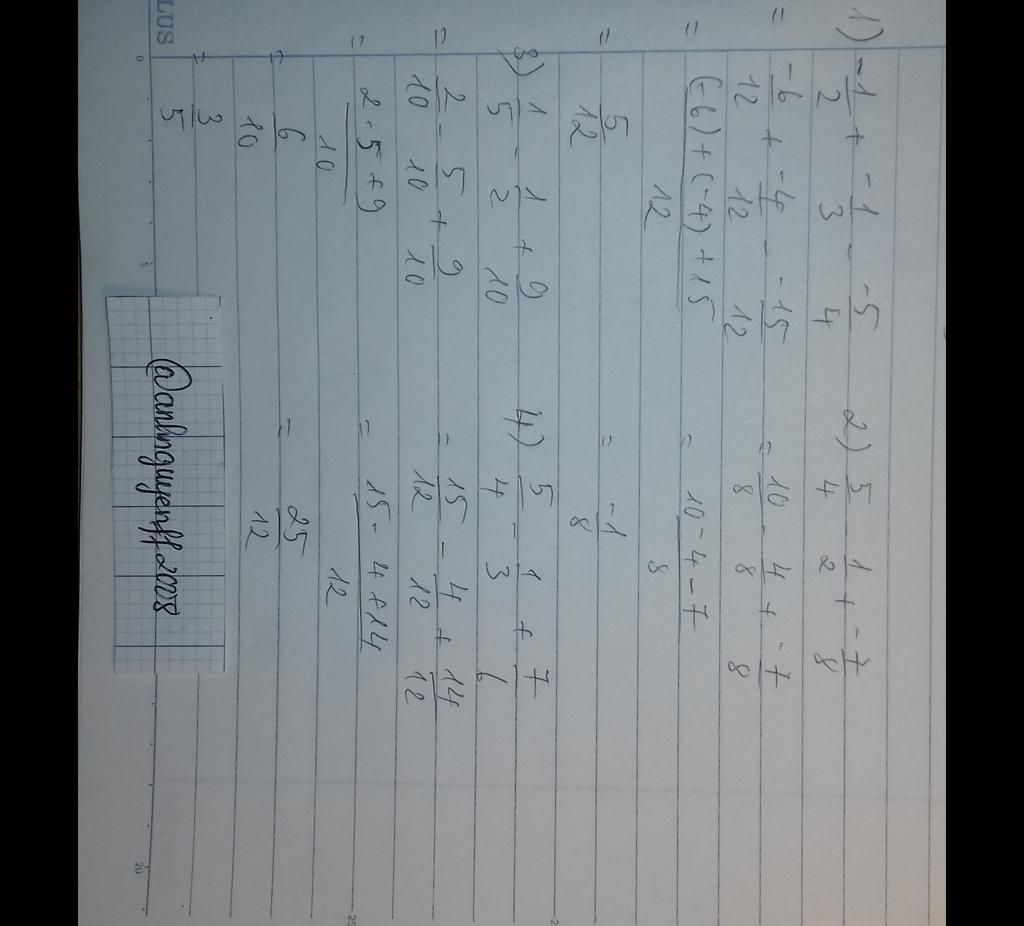 1) -1/2 + -1/3 - -5/4
= -6/12 + -4/12 - -15/12
= (-6)+(-4)+15/12
= 5/12
2) 5/4 - 1/2 + -7/8
= 10/8 - 4/8 + -7/8
= 10-4-7/8
= -1/8
3) 1/5 - 1/2 + 9/10
= 2/10 - 5/10 + 9/10
= 2-5+9/10
= 6/10
= 3/5
4) 5/4 - 1/3 + 7/6
= 15/12 - 4/12 + 14/12
= 15-4+14/12
= 25/12
@anlnguyenff2008
LUS
0
5
20
25